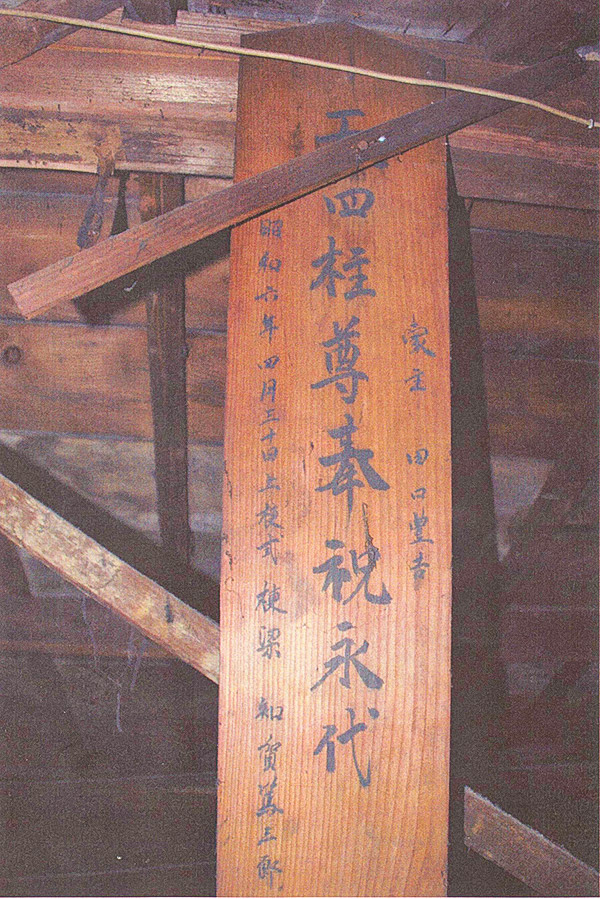 家主 田口豊吉
工四柱尊奉祝永代
昭和六年四月三十日上棟式 棟梁 和賀萬三郎